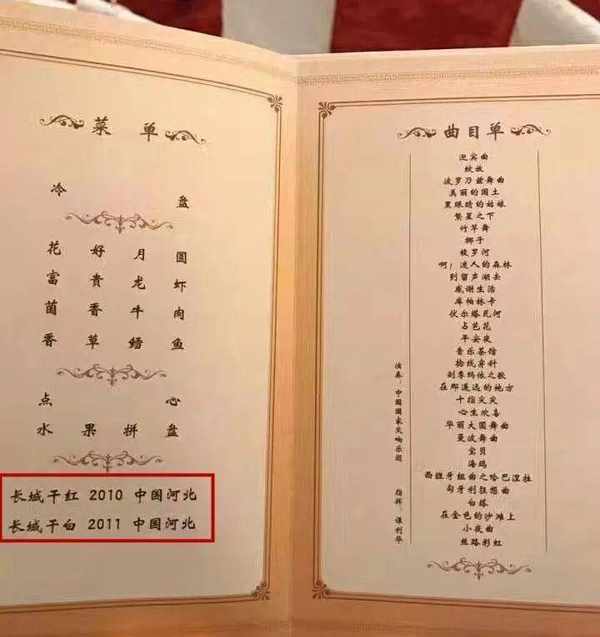 菜单
冷盘
花好月圆
富贵龙虾
菌香牛肉
香草鳕鱼
点心
水果拼盘
长城干红 2010 中国河北
长城干白 2011 中国河北
曲目单
迎宾曲
绽放
波罗乃兹舞曲
美丽的国土
黑眼睛的姑娘
繁星之下
竹竿舞
椰子
梭罗河
啊！迷人的森林
到留声湖去
感谢生活
库帕林卡
伏尔塔瓦河
占芭花
平安夜
音乐茶馆
拾线弃针
剑季玛依之歌
在那遥远的地方
十指灾灾
心生欢喜
华丽大圆舞曲
曼波舞曲
宝贝
海鸥
西班牙组曲之哈巴涅拉
匈牙利狂想曲
白塔
在金色的沙滩上
小夜曲
丝路彩虹
演奏：中国国家交响乐团
指挥：谭利华